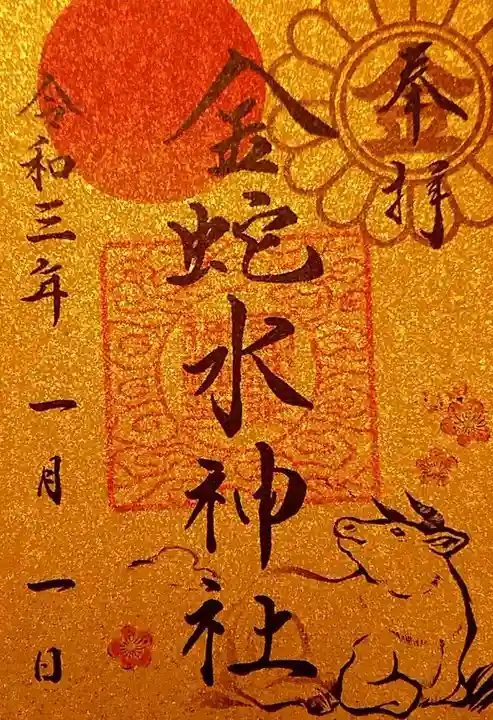 奉拝
金
金蛇水神社
令和三年一月一日